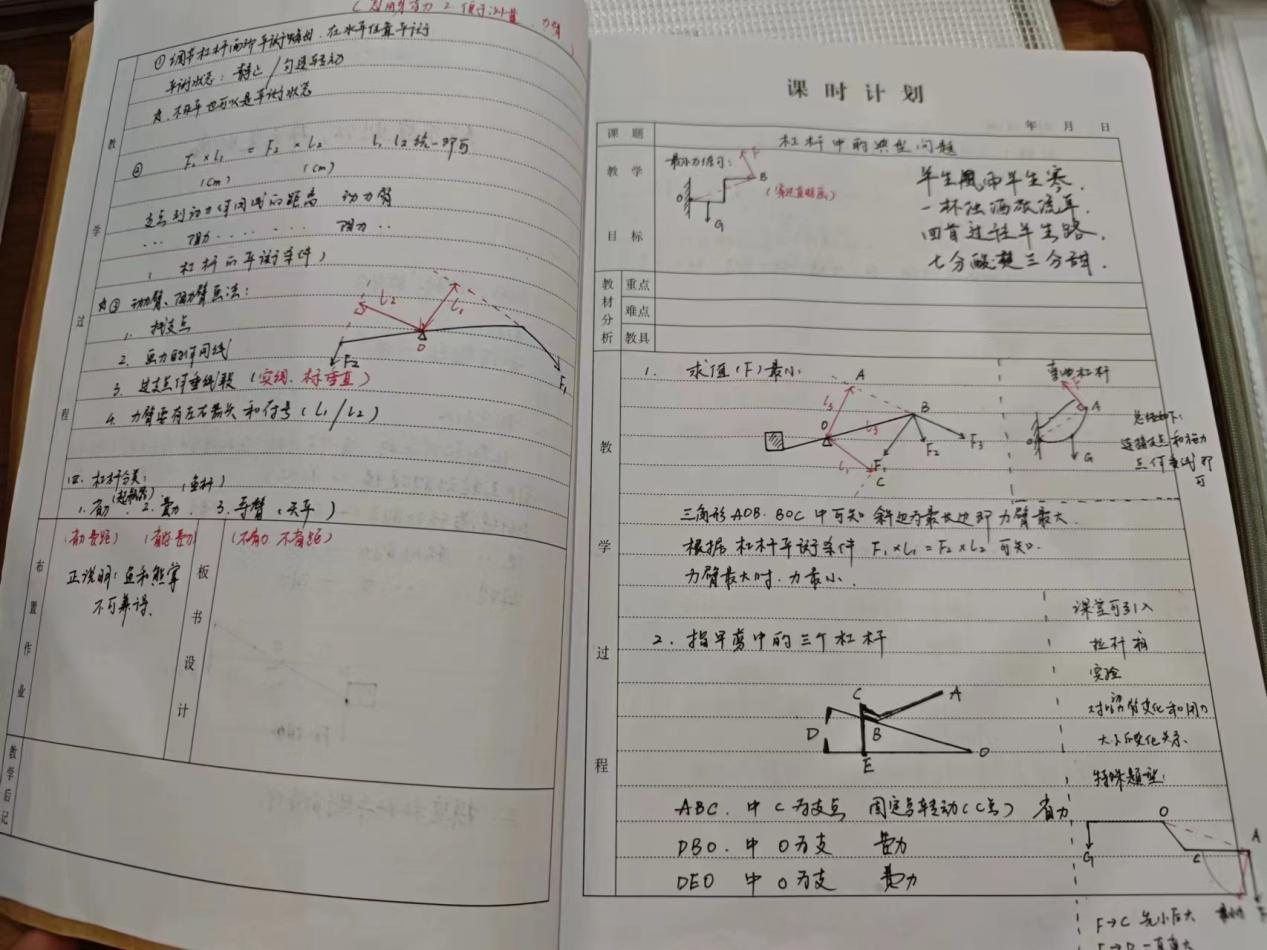 ①调节杠杆两邻平衡螺母.在水平位置平衡
平衡状态: 静止/匀速转动
不水平也可以是平衡状态
② F₁×L₁ = F₂×L₂ L₁ L₂统一即可
(cm) (cm)
支点到动力作用线的距离 动力臂
... 阻力 ...... 阻力..
(杠杆的平衡条件)
③ 动力臂、阻力臂画法:
1. 找支点
2. 画力的作用线
3. 过支点作垂线段 (实线、标垂直)
4. 力臂要有左右箭头和符号 (L₁/L₂)
L₂
L₁
O
F₂
F₁
四. 杠杆分类:
(起瓶器) (鱼杆)
1. 省力 2. 费力 3. 等臂 (天平)
(省力费距) (省距费力) (不省力 不省距)
正说明: 鱼和熊掌
不可兼得.
教
学
过
程
布
置
作
业
板
书
设
计
教
学
后
记
课时计划
年 月 日
课 题
杠杆中的典型问题
教 学
目 标
最小力练习:
F
B
O
G
半生风雨半生寒,
一杯浊酒敬流年.
回首过往半生路,
七分酸楚三分甜.
教
材
分
析
重点
难点
教具
教
学
过
程
1. 求值(F)最小
A
B
O
L₃
L₁
F₁
F₂
F₃
C
弯曲杠杆
F
A
O
G
总结如下:
连接支点和施力
点作垂线即
可
三角形AOB. BOC 中可知 斜边为最长边即力臂最大.
根据杠杆平衡条件 F₁×L₁=F₂×L₂ 可知.
力臂最大时.力最小.
课堂可引入
拉杆箱
实验
2. 指甲剪中的三个杠杆
C
A
D
B
E
O
大小的变化关系.
特殊题型:
ABC. 中 C为支点 固定点转动(C点) 省力
DBO. 中 O为支 费力
DEO 中 O为支 费力
O
G
C
A
F
F→C 先小后大